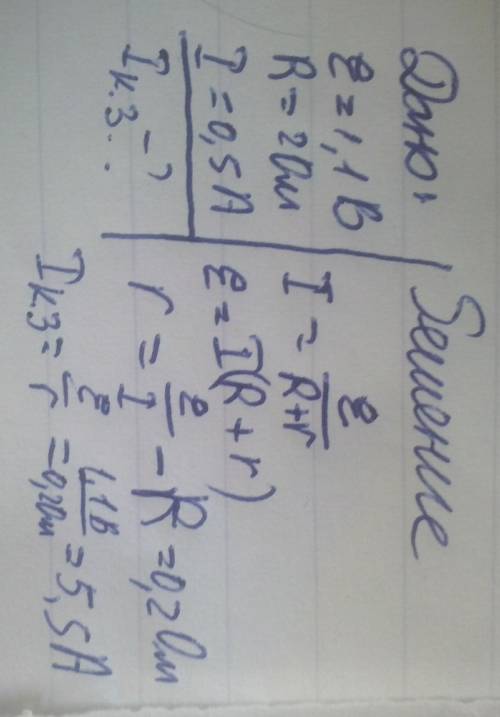 Дано:
ℰ = 1,1 В
R = 2 Ом
I = 0,5 А
Iк.з - ?
Решение
I = ℰ/(R+r)
ℰ = I(R + r)
r = ℰ/I - R = 0,2 Ом
Iк.з = ℰ/r = 1,1 В/0,2 Ом = 5,5 А